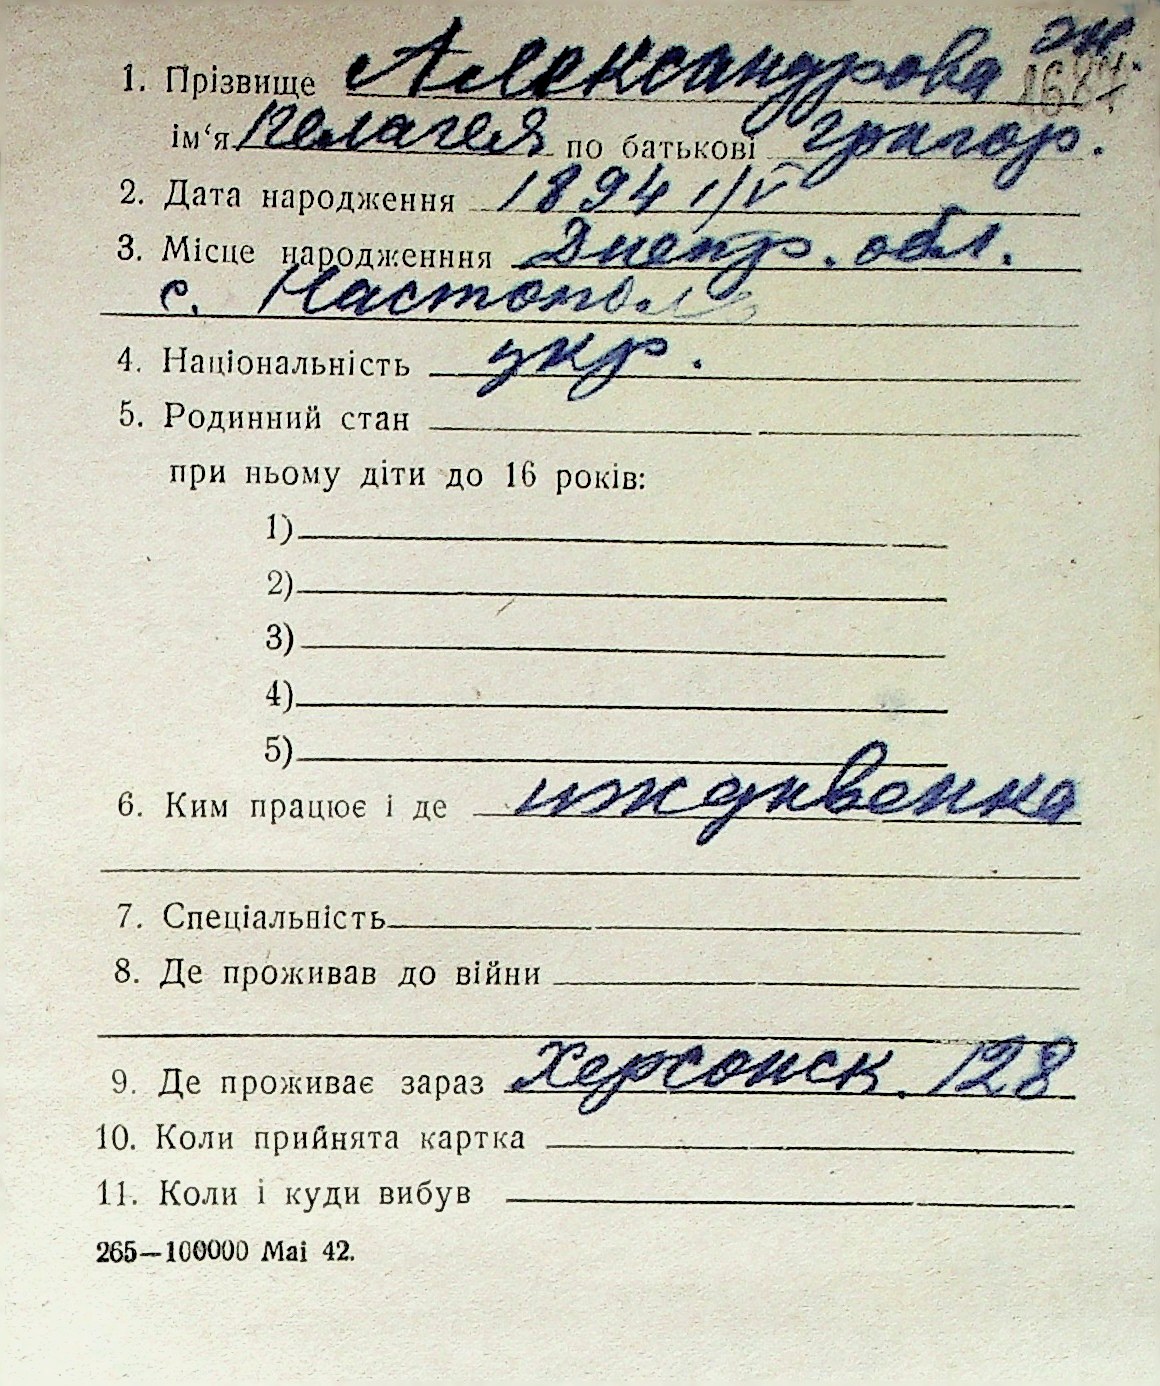 1. Прізвище Александрова
ім‘я Пелагея по батькові Григор.
2. Дата народження 1894 1/V
3. Місце народженння Днепр. обл.
с. Настополь
4. Національність укр.
5. Родинний стан
при ньому діти до 16 років:
1)
2)
3)
4)
5)
6. Ким працює і де иждивенка
7. Спеціальність
8. Де проживав до війни
9. Де проживає зараз Херсонск. 128
10. Коли прийнята картка
11. Коли і куди вибув
265—100000 Mai 42.